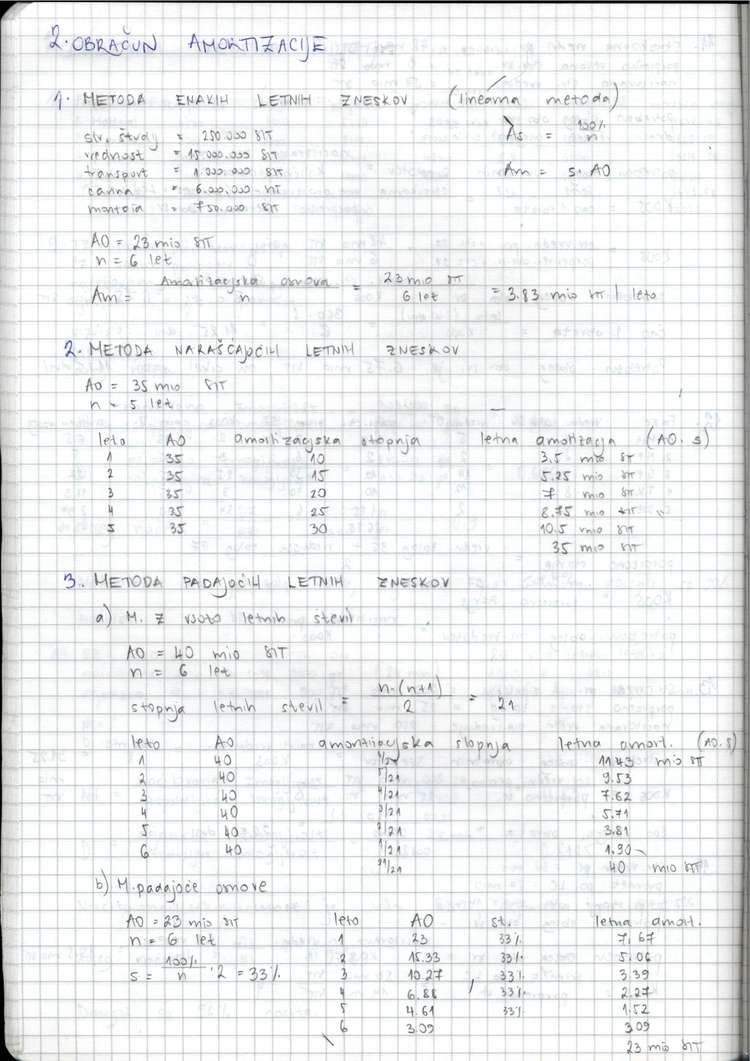 2. OBRAČUN AMORTIZACIJE
1. METODA ENAKIH LETNIH ZNESKOV (linearna metoda)
str. študij = 250.000 SIT
vrednost = 15.000.000 SIT
transport = 1.000.000 SIT
carina = 6.000.000 SIT
montaža = 750.000 SIT
As = 100% / n
Am = s. AO
AO = 23 mio SIT
n = 6 let
Am = Amortizacijska osnova / n = 23 mio SIT / 6 let = 3.83 mio SIT / leto
2. METODA NARAŠČAJOČIH LETNIH ZNESKOV
AO = 35 mio SIT
n = 5 let
leto AO amortizacijska stopnja letna amortizacija (AO. s)
1 35 10 3.5 mio SIT
2 35 15 5.25 mio SIT
3 35 20 7 mio SIT
4 35 25 8.75 mio SIT
5 35 30 10.5 mio SIT
35 mio SIT
3. METODA PADAJOČIH LETNIH ZNESKOV
a) M. z vsoto letnih števil
AO = 40 mio SIT
n = 6 let
stopnja letnih števil = n·(n+1) / 2 = 21
leto AO amortizacijska stopnja letna amort. (AO. s)
1 40 6/21 11.43 mio SIT
2 40 5/21 9.53
3 40 4/21 7.62
4 40 3/21 5.71
5 40 2/21 3.81
6 40 1/21 1.90
21/21 40 mio SIT
b) M. padajoče osnove
AO = 23 mio SIT
n = 6 let
s = 100% / n · 2 = 33%
leto AO st. letna amort.
1 23 33% 7.67
2 15.33 33% 5.06
3 10.27 33% 3.39
4 6.88 33% 2.27
5 4.61 33% 1.52
6 3.09 3.09
23 mio SIT